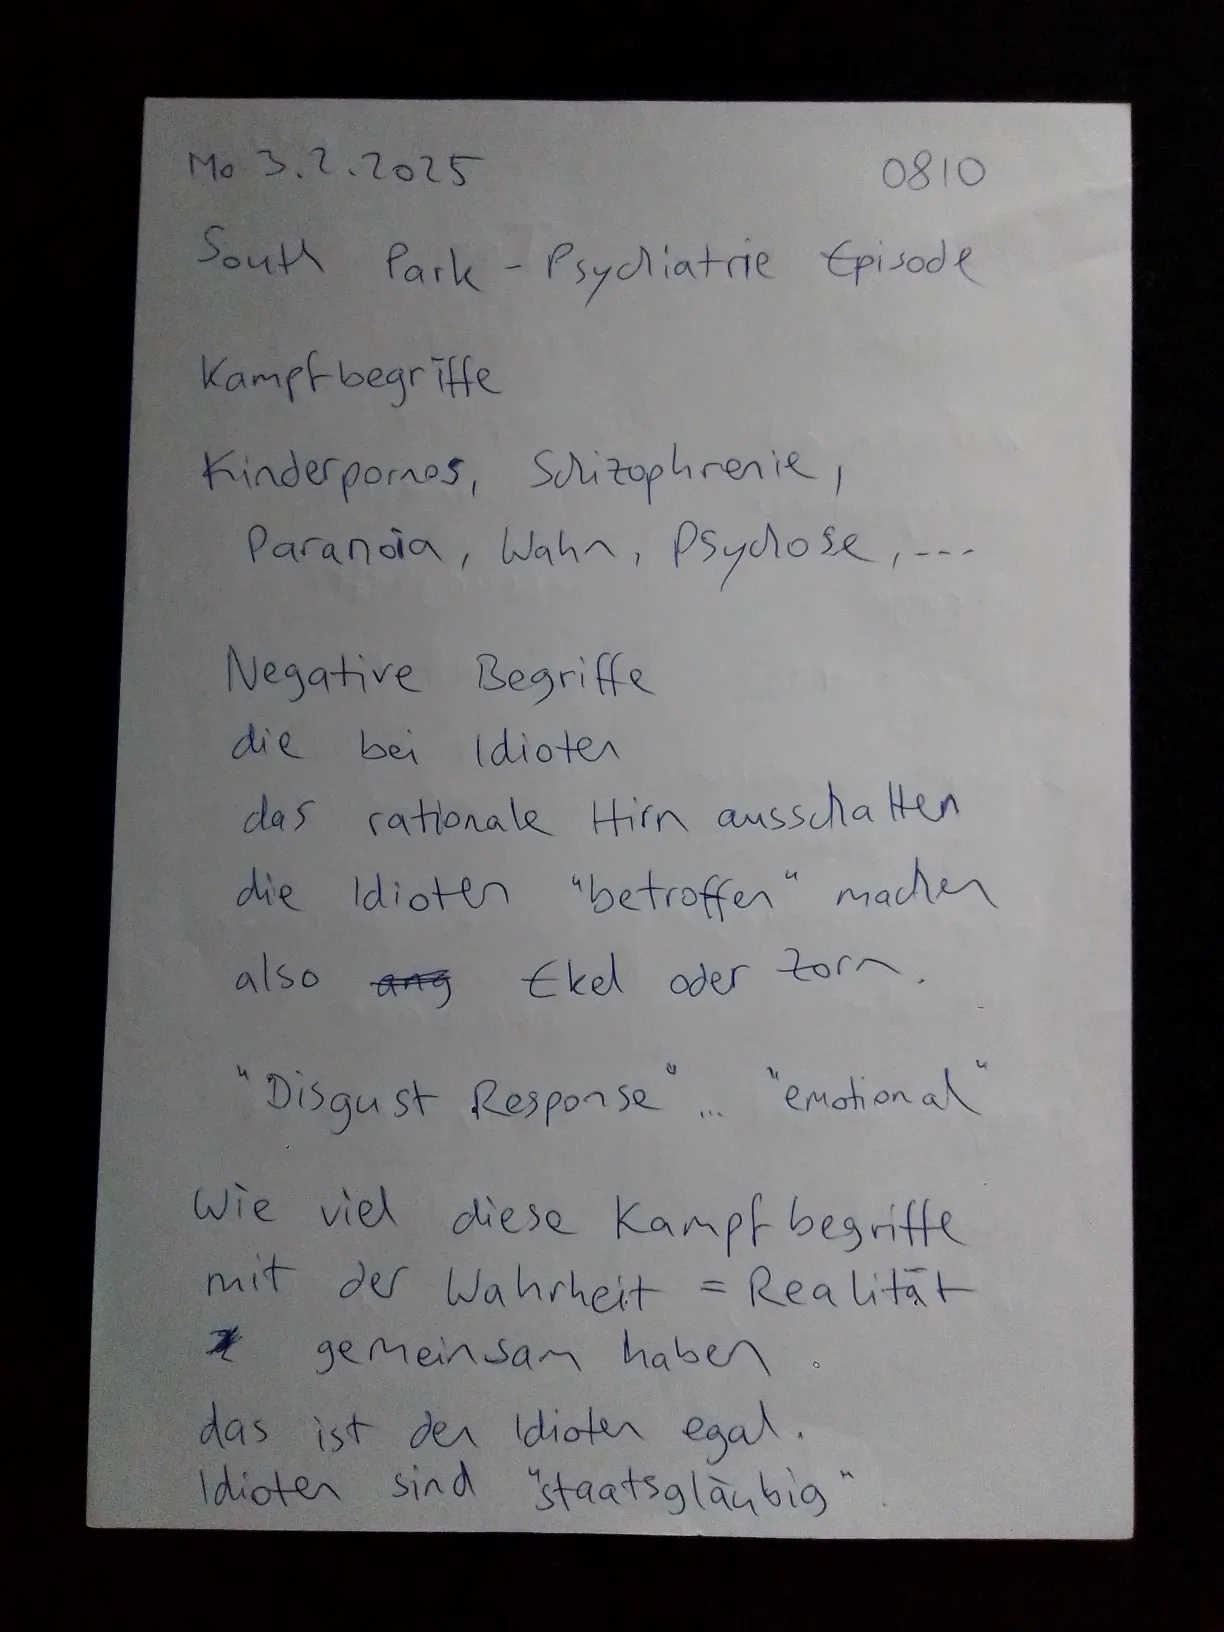 Mo 3.2.2025 0810
South Park - Psychiatrie Episode
Kampfbegriffe
Kinderpornos, Schizophrenie,
Paranoia, Wahn, Psychose, ---
Negative Begriffe
die bei Idioten
das rationale Hirn ausschalten
die Idioten "betroffen" machen
also ang Ekel oder Zorn.
"Disgust Response" ... "emotional"
Wie viel diese Kampfbegriffe
mit der Wahrheit = Realität
gemeinsam haben.
das ist den Idioten egal.
Idioten sind "staatsgläubig".